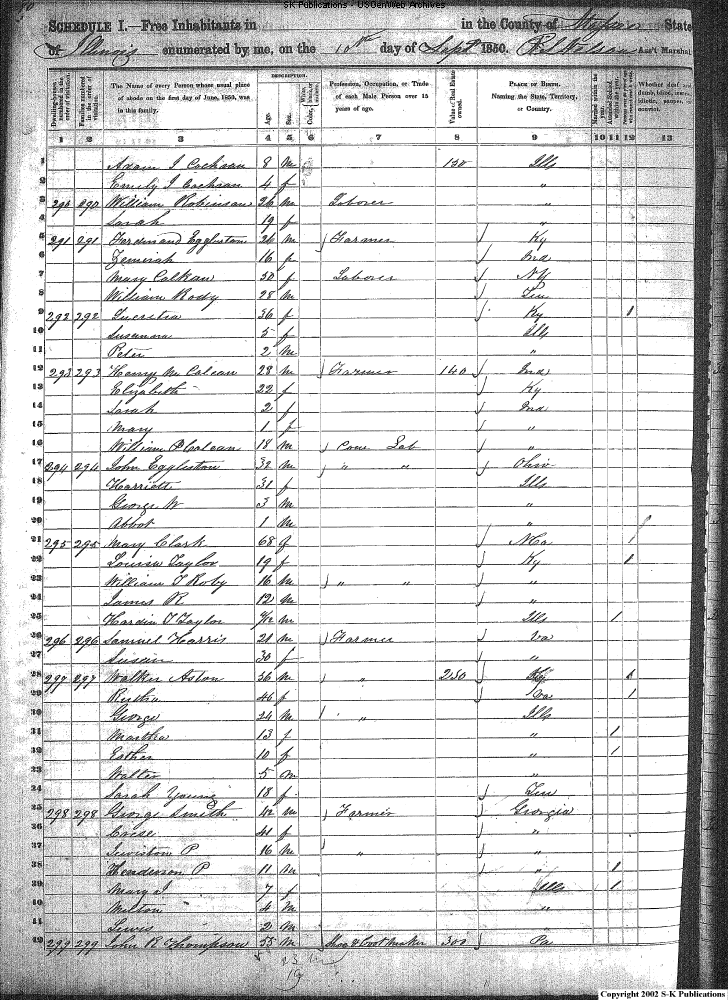 S-K Publications - USGenWeb Archives
SCHEDULE I.—Free Inhabitants in in the County of State
of Illinois enumerated by me, on the 10th day of Sept 1850. Ass't Marshal
DESCRIPTION.
Dwelling-houses numbered in the order of visitation.
Families numbered in the order of visitation.
The Name of every Person whose usual place of abode on the first day of June, 1850, was in this family.
Age.
Sex.
Color, White, black, or mulatto.
Profession, Occupation, or Trade of each Male Person over 15 years of age.
Value of Real Estate owned.
PLACE OF BIRTH. Naming the State, Territory, or Country.
Married within the year.
Whether deaf and dumb, blind, insane, idiotic, pauper, or convict.
1 2 3 4 5 6 7 8 9 10 11 12 13
1 Adam J Cochran 8 m 150 Ills
2 Emily J Cochran 4 f "
3 290 290 William Robinson 26 m Laborer "
4 Sarah 19 f "
5 291 291 Ferdinand Eggleston 26 m Farmer Ky
6 16 f Ind
7 Mary Calkan 50 f Laborer
8 William Rody 28 m Ten
9 292 292 Lucretia 36 f Ky 1
10 Susanna 5 f Ills
11 Peter 2 m "
12 293 293 Henry M Calean 28 m Farmer 140 Ind
13 Elizabeth 22 f Ky
14 Sarah 2 f Ind
15 Mary 1 f "
16 William P Calean 18 m Com Lab "
17 294 294 John Eggleston 32 m " " Ohio
18 Harriett 31 f Ills
19 George W 3 m "
20 Abbot 1 m "
21 295 295 Mary Clark 68 f 1
22 Louisa Taylor 19 f Ky 1
23 William T Roby 16 m " " "
24 James R 12 m "
25 Hardin T Taylor m Ills 1
26 296 296 Samuel Harris 21 m Farmer Va
27 Susan 30 f "
28 297 297 Walker Aston 56 m " 250 1
29 46 f Va 1
30 George 24 m " Ills
31 Martha 13 f " 1
32 Esther 10 f " 1
33 Walter 5 m "
34 Sarah Young 18 f Ten
35 298 298 George Smith 42 m Farmer Georgia
36 41 f "
37 Lewiston P 16 m " "
38 Henderson P 11 m " 1
39 Mary J 7 f Ills 1
40 Milton 4 m "
41 Lewis 2 m "
42 299 299 John B Thompson 55 m Shoe & Bootmaker 300 Pa
23
19
Copyright 2002 S-K Publications